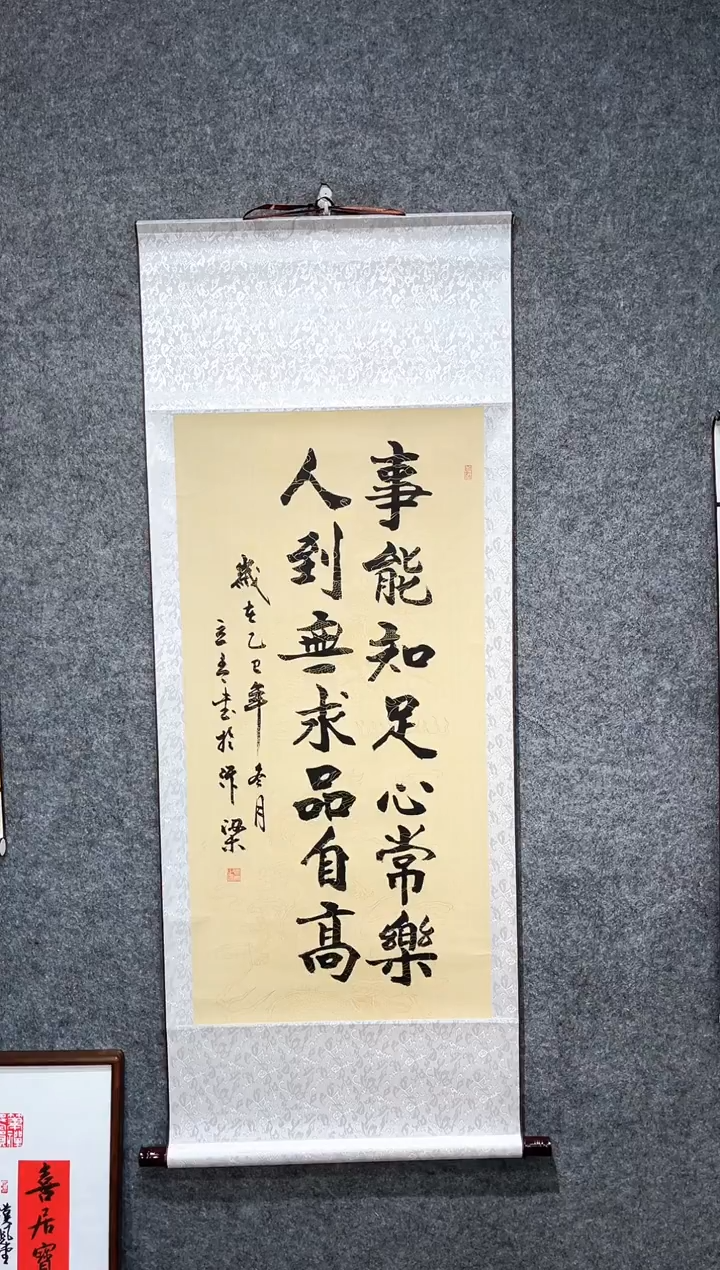 事能知足心常樂
人到無求品自高
歲在乙巳年冬月
立春書於汴梁
喜居寶
漢風堂